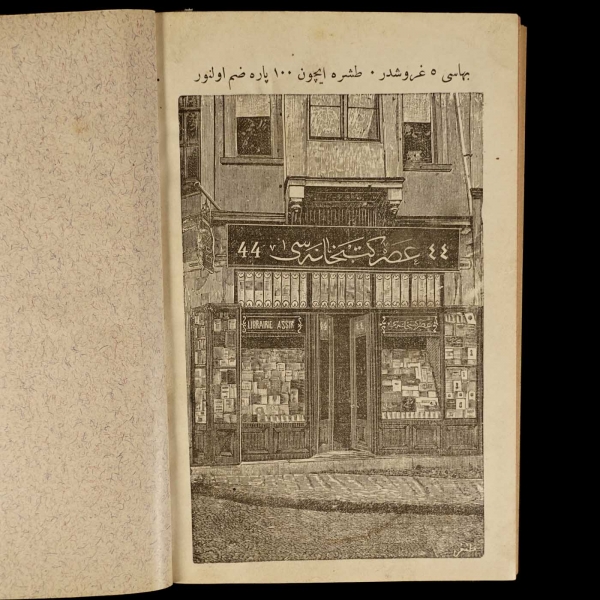 بهاسی ٥ غروشدر ٠ طشره ایچون ١٠٠ پاره ضم اولنور
٤٤ عصر كتبخانه سی 44
LIBRAIRIE ASSIR
عصر كتبخانه سی